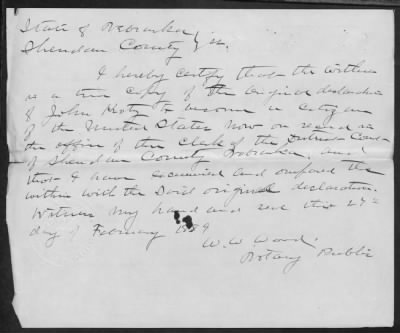 State of Nebraska
Sheridan County } ss.
I hereby certify that the within
is a true copy of the original declaration
of John Kotz to become a citizen
of the United States now on record in
the office of the Clerk of the District Court
of Sheridan County Nebraska, and
that I have examined and compared the
within with the said original declaration.
Witness my hand and seal this 27th
day of February 1889
W. W. Wood.
Notary Public